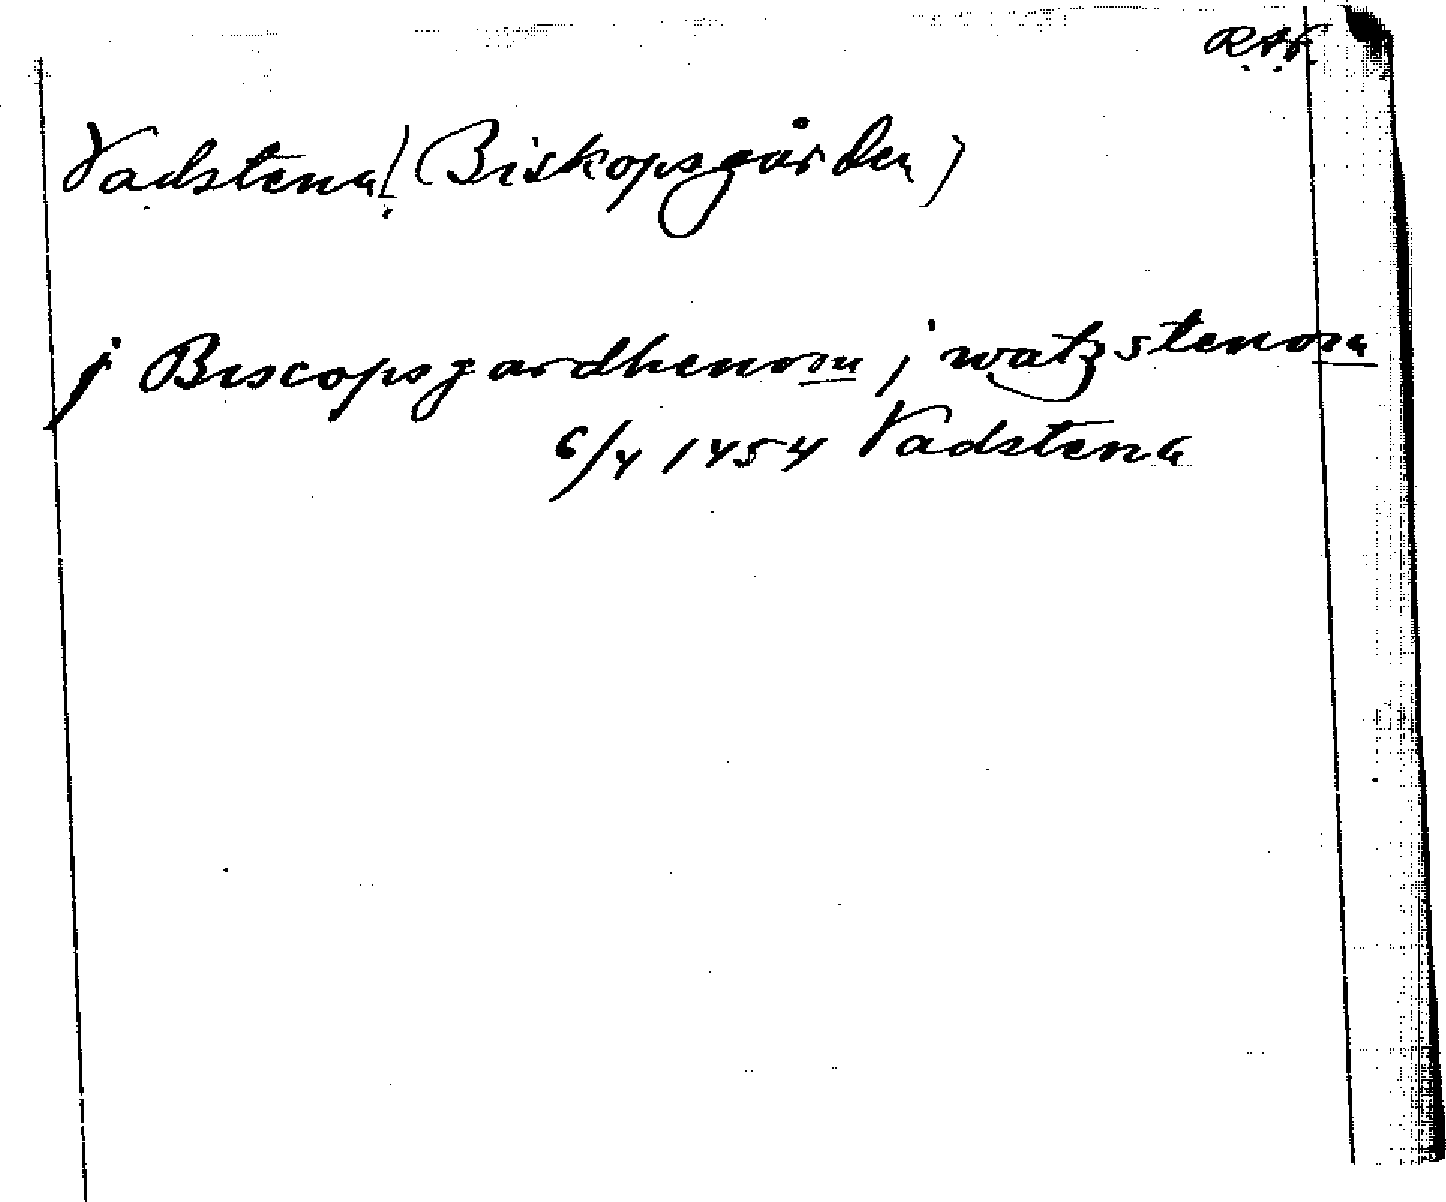 R.A.P.
Vadstena! (Biskopsgården)
j Biscopsgardhenom j watzstenom
6/4 1454 Vadstena